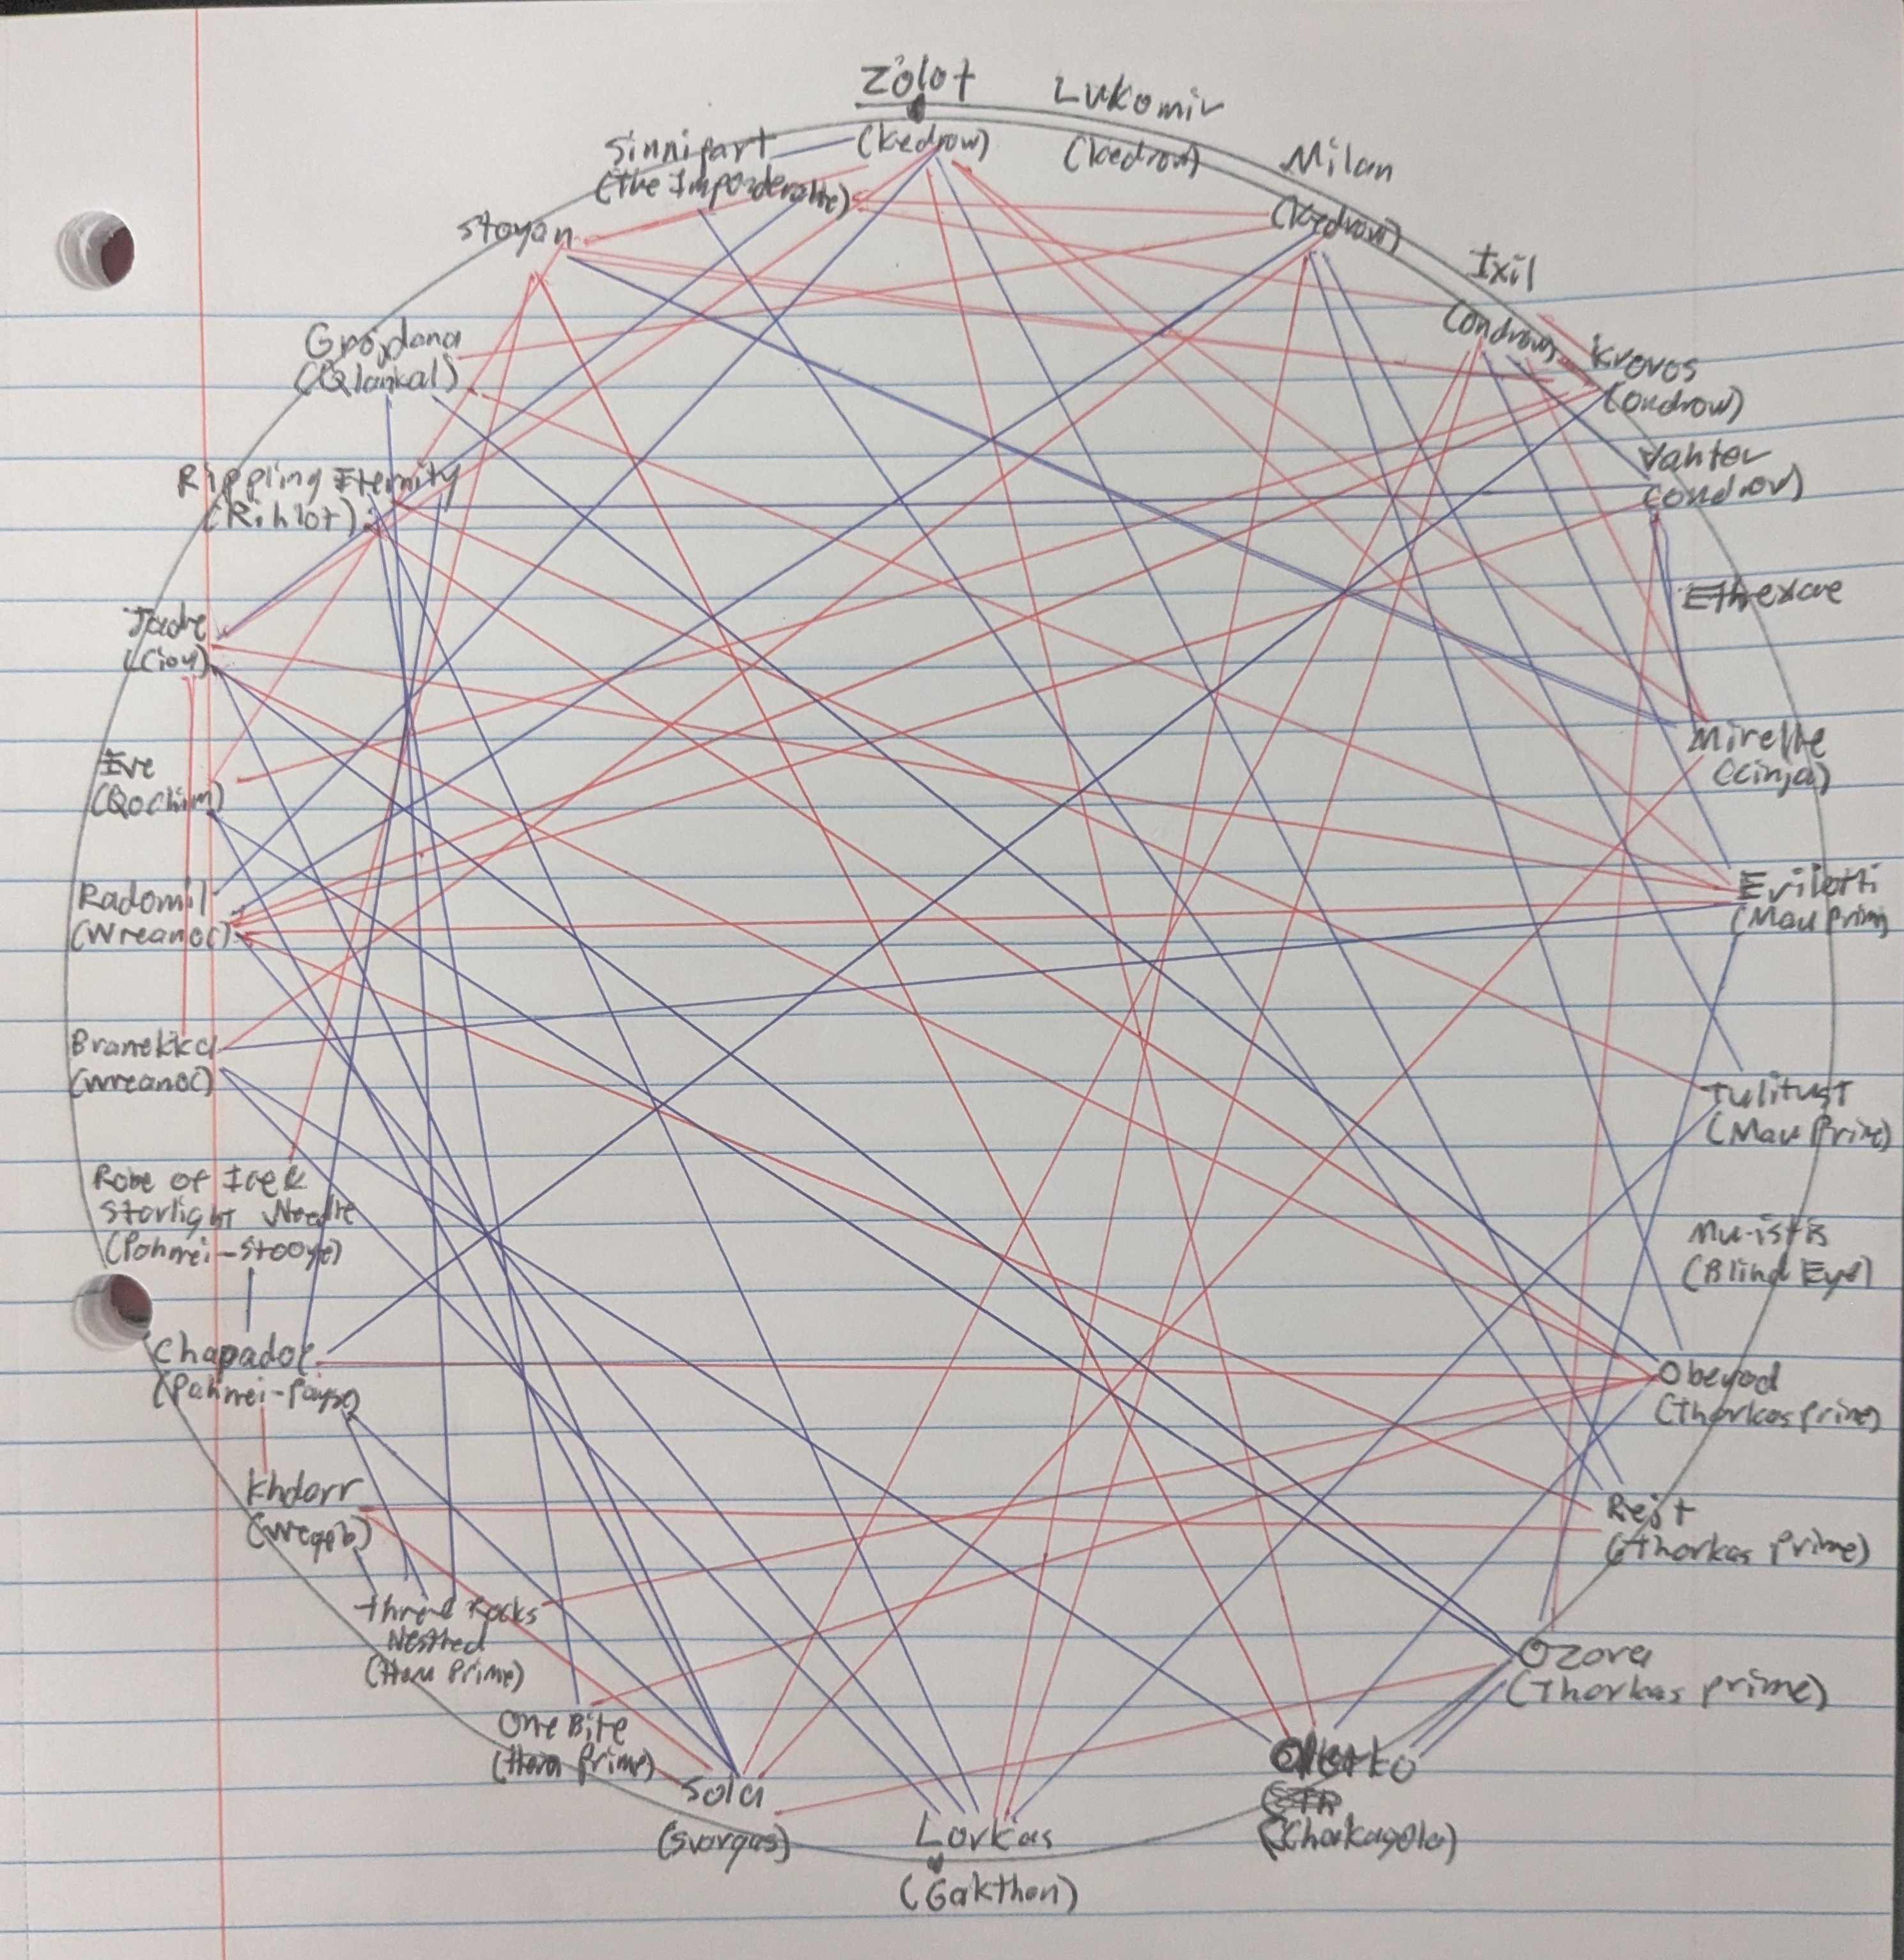 Zolot
(Kedrow)
Lukomir
(Kedrow)
Milan
(Kedrow)
Ixil
(Ondrow)
Krovos
(Ondrow)
Vahter
(Ondrow)
Ethexare
Mirelle
(Cinja)
Evilotti
(Mau Prim)
Tulitust
(Mau Prime)
Mu-istis
(Blind Eye)
Obevod
(Thorkas Prime)
Rejt
(Thorkas Prime)
Ozora
(Thorkas prime)
(Chorkagola)
Lorkas
(Gakthon)
Sola
(Svargas)
One Bite
(Hara Prime)
Three Rocks
Nestled
(Hara Prime)
Khdarr
Chapador
Robe of Ice &
Starlight Needle
Branekka
(Wreanoc)
Radomil
(Wreanoc)
Eve
(Qochim)
Jadre
(Ciou)
Rippling Eternity
(Rihlot)
Grojdana
(Qlankal)
Stoyan
Sinnipart
(The Imponderable)